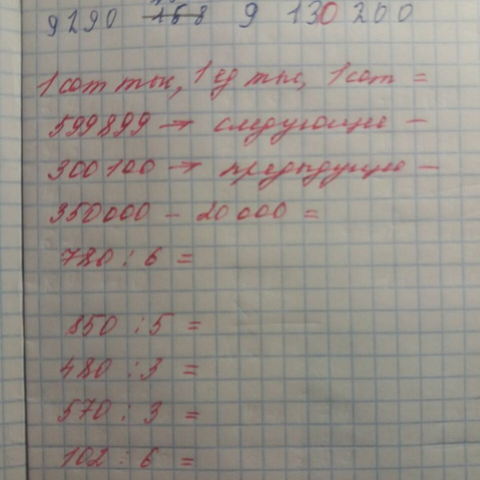 9290 168 9 130 200
1 сот тыс, 1 ед тыс, 1 сот =
599899 → следующее –
300100 → предыдущее –
350000 – 20000 =
780 : 6 =
850 : 5 =
480 : 3 =
570 : 3 =
102 : 6 =